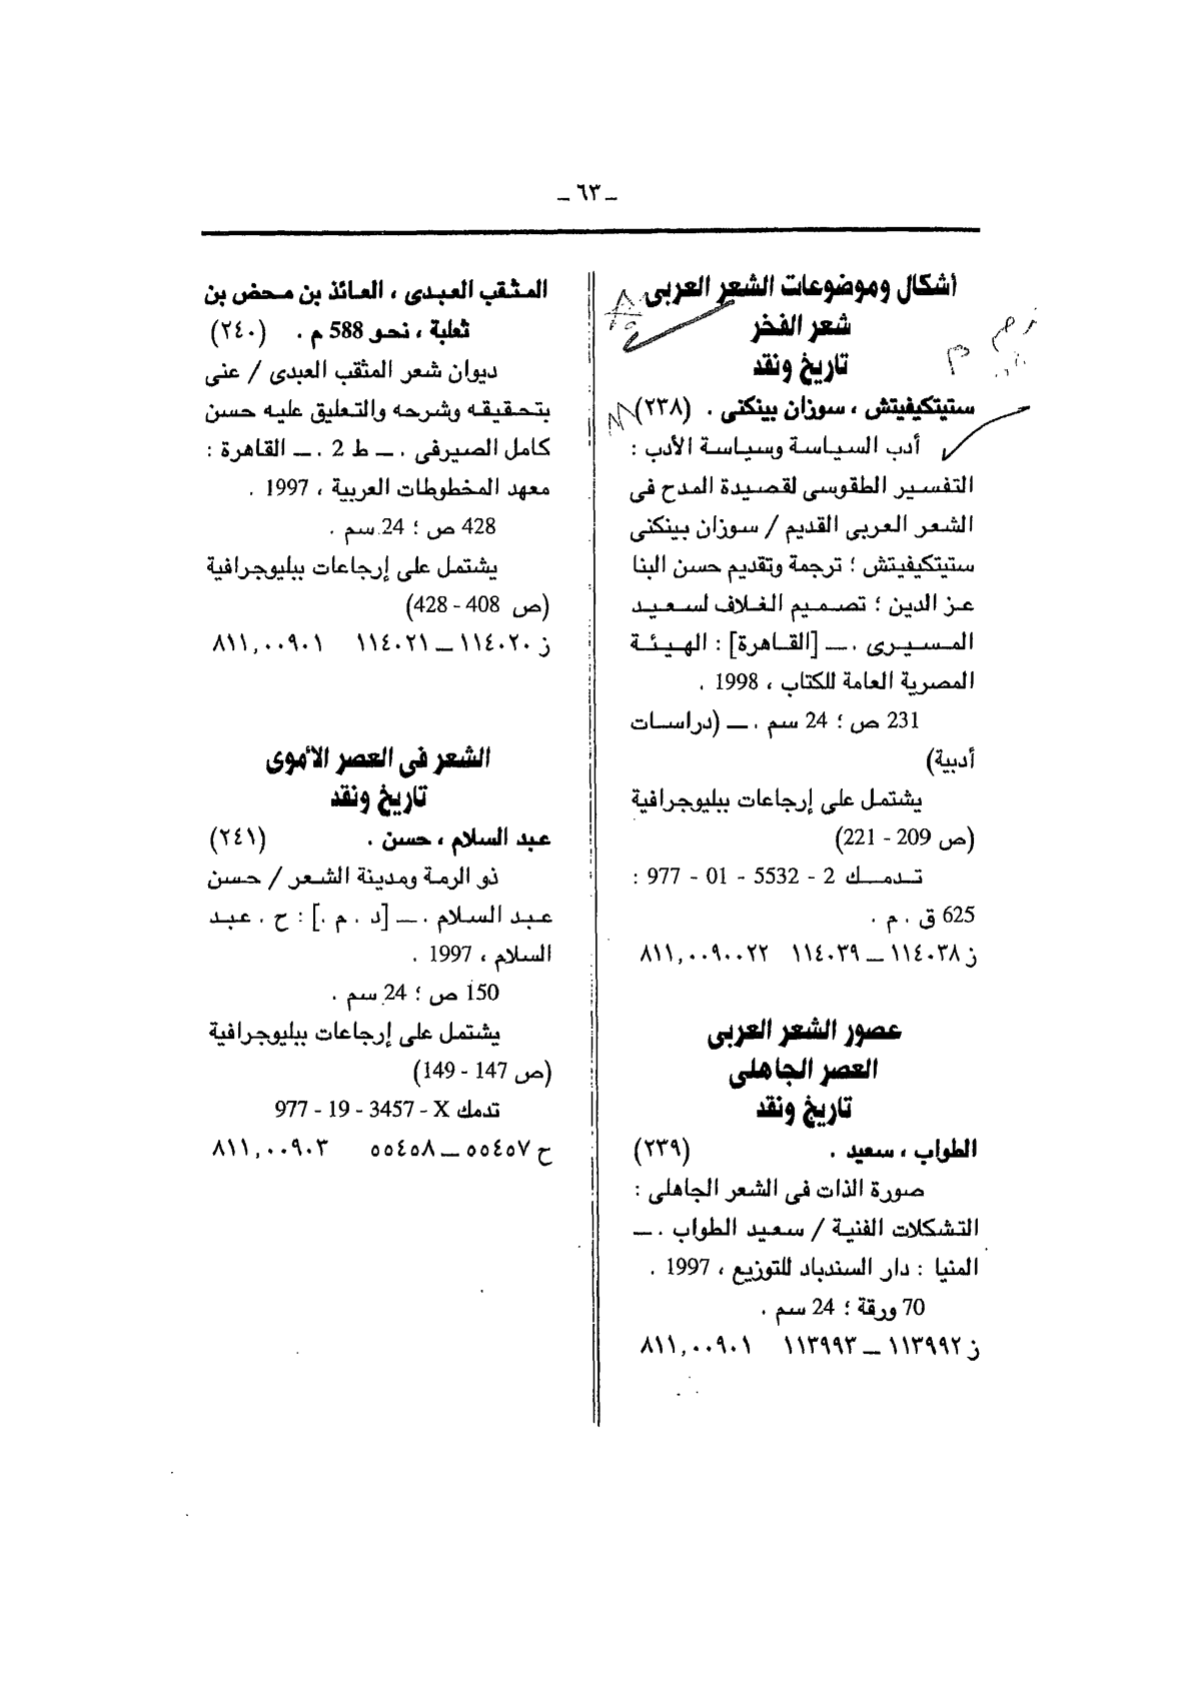 ـ ٦٣ ـ
أشكال وموضوعات الشعر العربى
شعر الفخر
تاريخ ونقد
ستيتكيفيتش ، سوزان بينكنى . (٢٣٨)
أدب السياسة وسياسة الأدب :
التفسير الطقوسى لقصيدة المدح فى
الشعر العربى القديم / سوزان بينكنى
ستيتكيفيتش ؛ ترجمة وتقديم حسن البنا
عز الدين ؛ تصميم الغلاف لسعيد
المسيرى . ــ [القاهرة] : الهيئة
المصرية العامة للكتاب ، 1998 .
231 ص ؛ 24 سم . ــ (دراسات
أدبية)
يشتمل على إرجاعات ببليوجرافية
(ص 209 - 221)
تدمك 2 - 5532 - 01 - 977 :
625 ق . م .
ز ١١٤٠٣٨ ــ ١١٤٠٣٩ ٨١١,٠٠٩٠٠٢٢
عصور الشعر العربى
العصر الجاهلى
تاريخ ونقد
الطواب ، سعيد . (٢٣٩)
صورة الذات فى الشعر الجاهلى :
التشكلات الفنية / سعيد الطواب . ــ
المنيا : دار السندباد للتوزيع ، 1997 .
70 ورقة ؛ 24 سم .
ز ١١٣٩٩٢ ــ ١١٣٩٩٣ ٨١١,٠٠٩٠١
المثقب العبدى ، العائذ بن محض بن
ثعلبة ، نحو 588 م . (٢٤٠)
ديوان شعر المثقب العبدى / عنى
بتحقيقه وشرحه والتعليق عليه حسن
كامل الصيرفى . ــ ط 2 . ــ القاهرة :
معهد المخطوطات العربية ، 1997 .
428 ص ؛ 24 سم .
يشتمل على إرجاعات ببليوجرافية
(ص 408 - 428)
ز ١١٤٠٢٠ ــ ١١٤٠٢١ ٨١١,٠٠٩٠١
الشعر فى العصر الأموى
تاريخ ونقد
عبد السلام ، حسن . (٢٤١)
ذو الرمة ومدينة الشعر / حسن
عبد السلام . ــ [د . م .] : ح . عبد
السلام ، 1997 .
150 ص ؛ 24 سم .
يشتمل على إرجاعات ببليوجرافية
(ص 147 - 149)
تدمك X - 3457 - 19 - 977
ح ٥٥٤٥٧ ــ ٥٥٤٥٨ ٨١١,٠٠٩٠٣